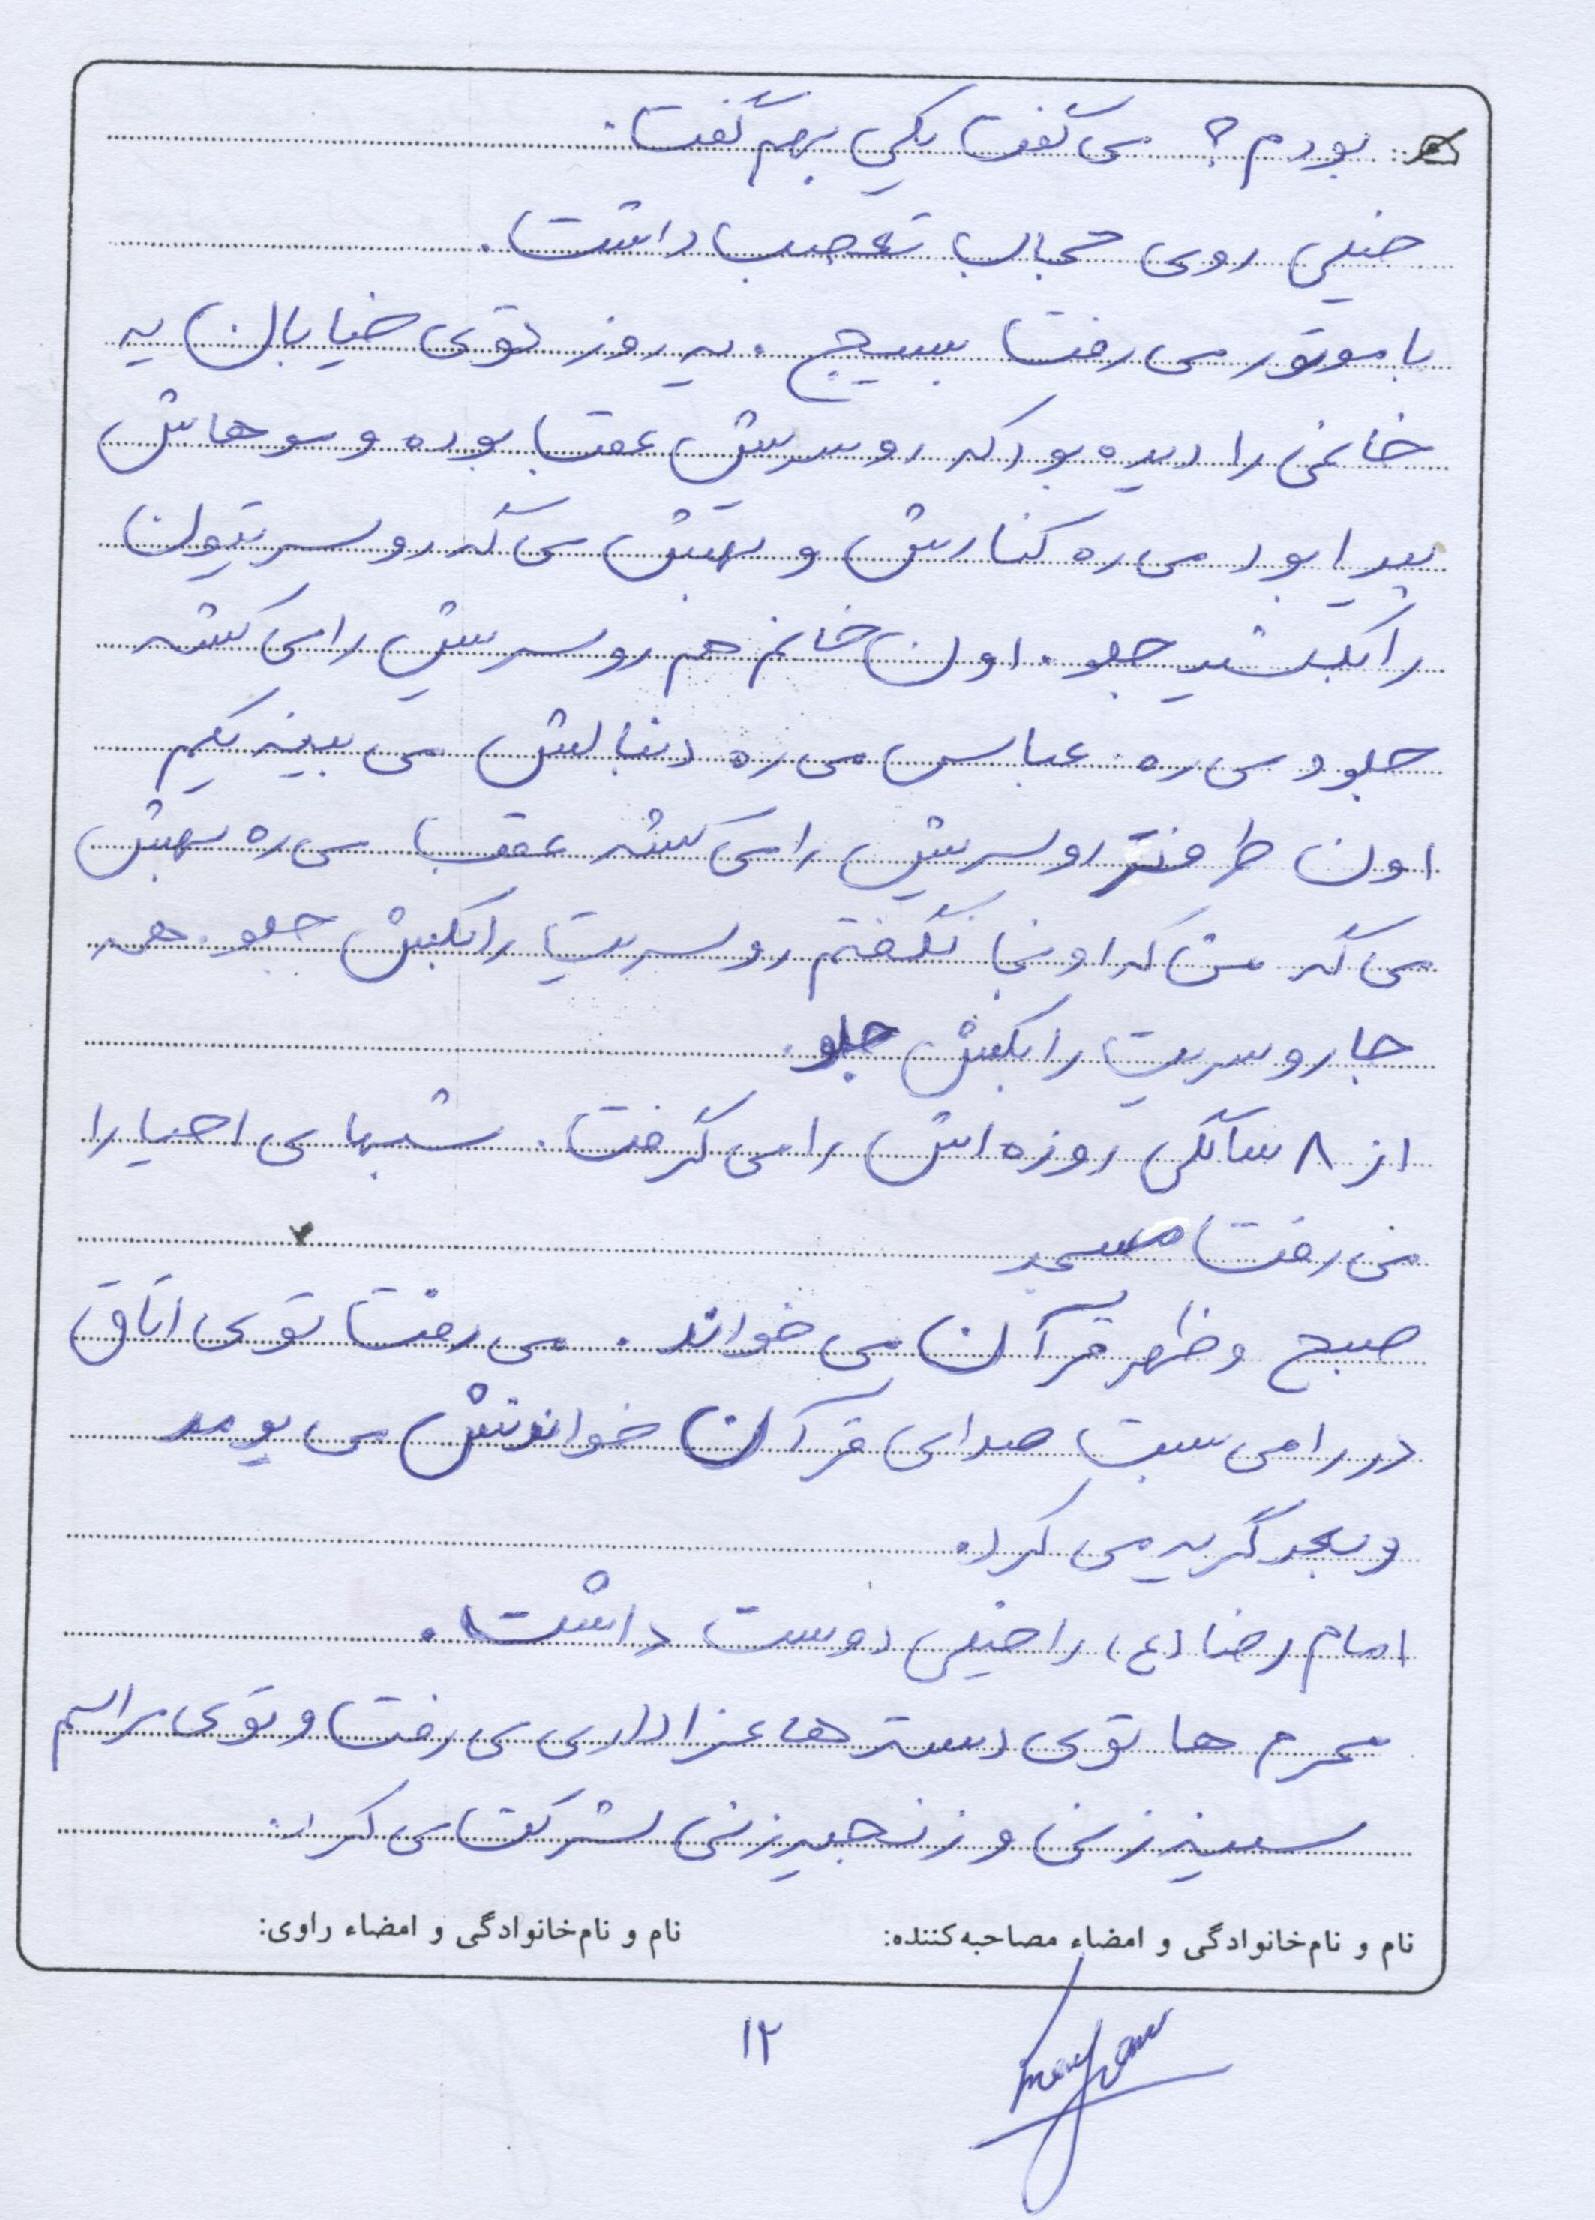 بودم؟ می گفت یکی بهم گفت.
خیلی روی حجاب تعصب داشت.
با موتور می رفت بسیج. یه روز توی خیابان یه
خانمی را دیده بود که روسریش عقب بوده و موهاش
پیدا بود می ره کنارش و بهش می گه روسریتون
را بکشید جلو. اون خانم هم روسریش را می کشه
جلو و می ره. عباس می ره دنبالش می بینه یکم
اون طرفتر روسریش را می کشه عقب می ره بهش
می گه من که اونجا نگفتم روسریت را بکش جلو. همه
جا روسریت را بکش جلو.
از ۸ سالگی روزه اش را می گرفت. شبهای احیا را
می رفت مسجد
صبح و ظهر قرآن می خواند. می رفت توی اتاق
در را می بست صدای قرآن خوندنش می یومد
و بعد گریه می کرد.
امام رضا (ع) را خیلی دوست داشت.
محرم ها توی دسته های عزاداری می رفت و توی مراسم
سینه زنی و زنجیرزنی شرکت می کرد.
نام و نام‌خانوادگی و امضاء مصاحبه‌کننده: نام و نام‌خانوادگی و امضاء راوی:
۱۲